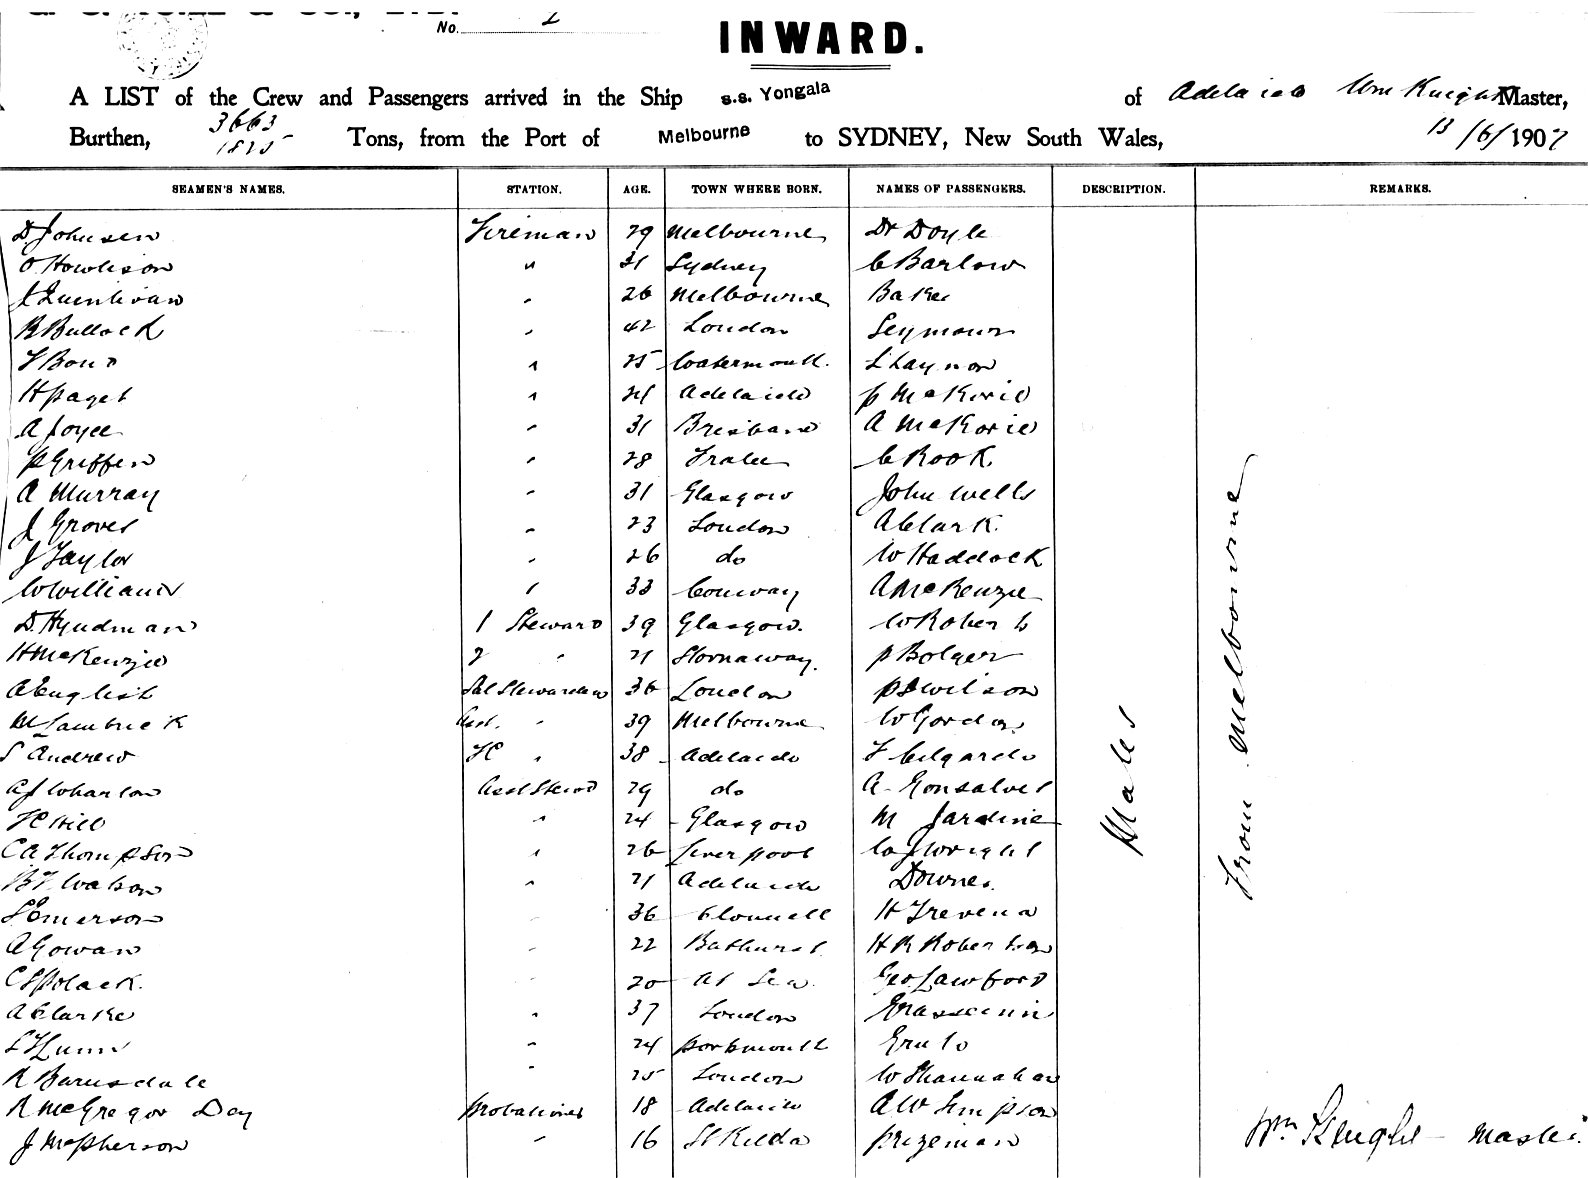 No. 2
INWARD.
A LIST of the Crew and Passengers arrived in the Ship s.s. Yongala of Adelaide Wm Knight Master,
Burthen, 3663 1825 Tons, from the Port of Melbourne to SYDNEY, New South Wales, 13/6/1907
SEAMEN'S NAMES. STATION. AGE. TOWN WHERE BORN. NAMES OF PASSENGERS. DESCRIPTION. REMARKS.
D Johnsen Fireman 29 Melbourne Dr Doyle
O Howlison " 31 Sydney C Barlow
J Quinlivan " 26 Melbourne Baker
R Bullock " 42 London Seymour
F Bond " 25 L Laynon
H Paget " 21 Adelaide P McKorie
A Joyce " 31 Brisbane A McKorie
P Griffen " 28 Tralee C Rook
A Murray " 31 Glasgow John Wells
J Groves " 23 London A Clark.
J Taylor " 26 do W Haddock
W Williams " 33 Conway A McKenzie
D Hyndman 1 Steward 39 Glasgow. W Roberts
H McKenzie 2 " 21 Stornaway. P Bolger
A English Sal Stewardess 36 London P S Wilson
M Lambrick Asst. " 39 Melbourne W Gordon
S Andrew FC " 38 Adelaide F Cilgardo
A J Wharton Asst Stewd 29 do A Gonsalves
H C Hill " 24 Glasgow M Jardine
C A Thompson " 26 Liverpool C J Wright
B F Watson " 21 Adelaide Downes.
L Emerson " 36 Clonmell H Trevena
A Gowan " 22 Bathurst H R Robertson
C S Polack. " 20 At Sea. Geo Lawford
A Clarke " 37 London
L F Lunn " 24 Portsmouth
R Barnsdale " 25 London W Shannahan
R McGregor Day Probationer 18 Adelaide A W Simpson
J McPherson " 16 St Kilda Prizeman
Males
From Melbourne
Wm Knight - Master.